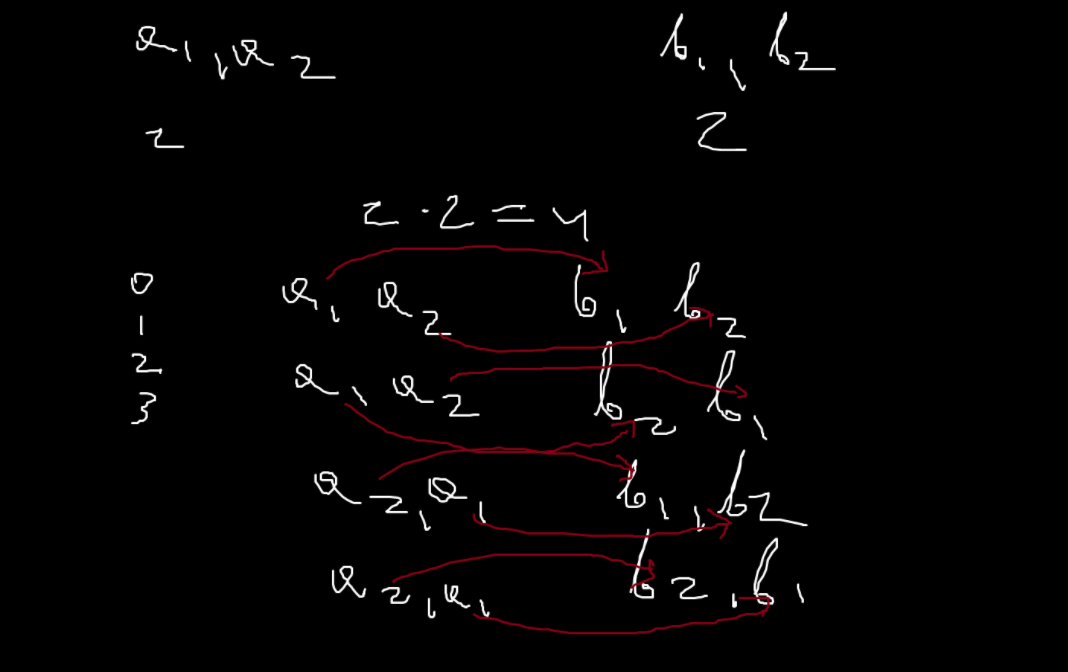 a₁, a₂ b₁, b₂
2 2
2 · 2 = 4
0 a₁ a₂ b₁ b₂
1
2 a₁ a₂ b₂ b₁
3
a₂, a₁ b₁, b₂
a₂, a₁ b₂, b₁